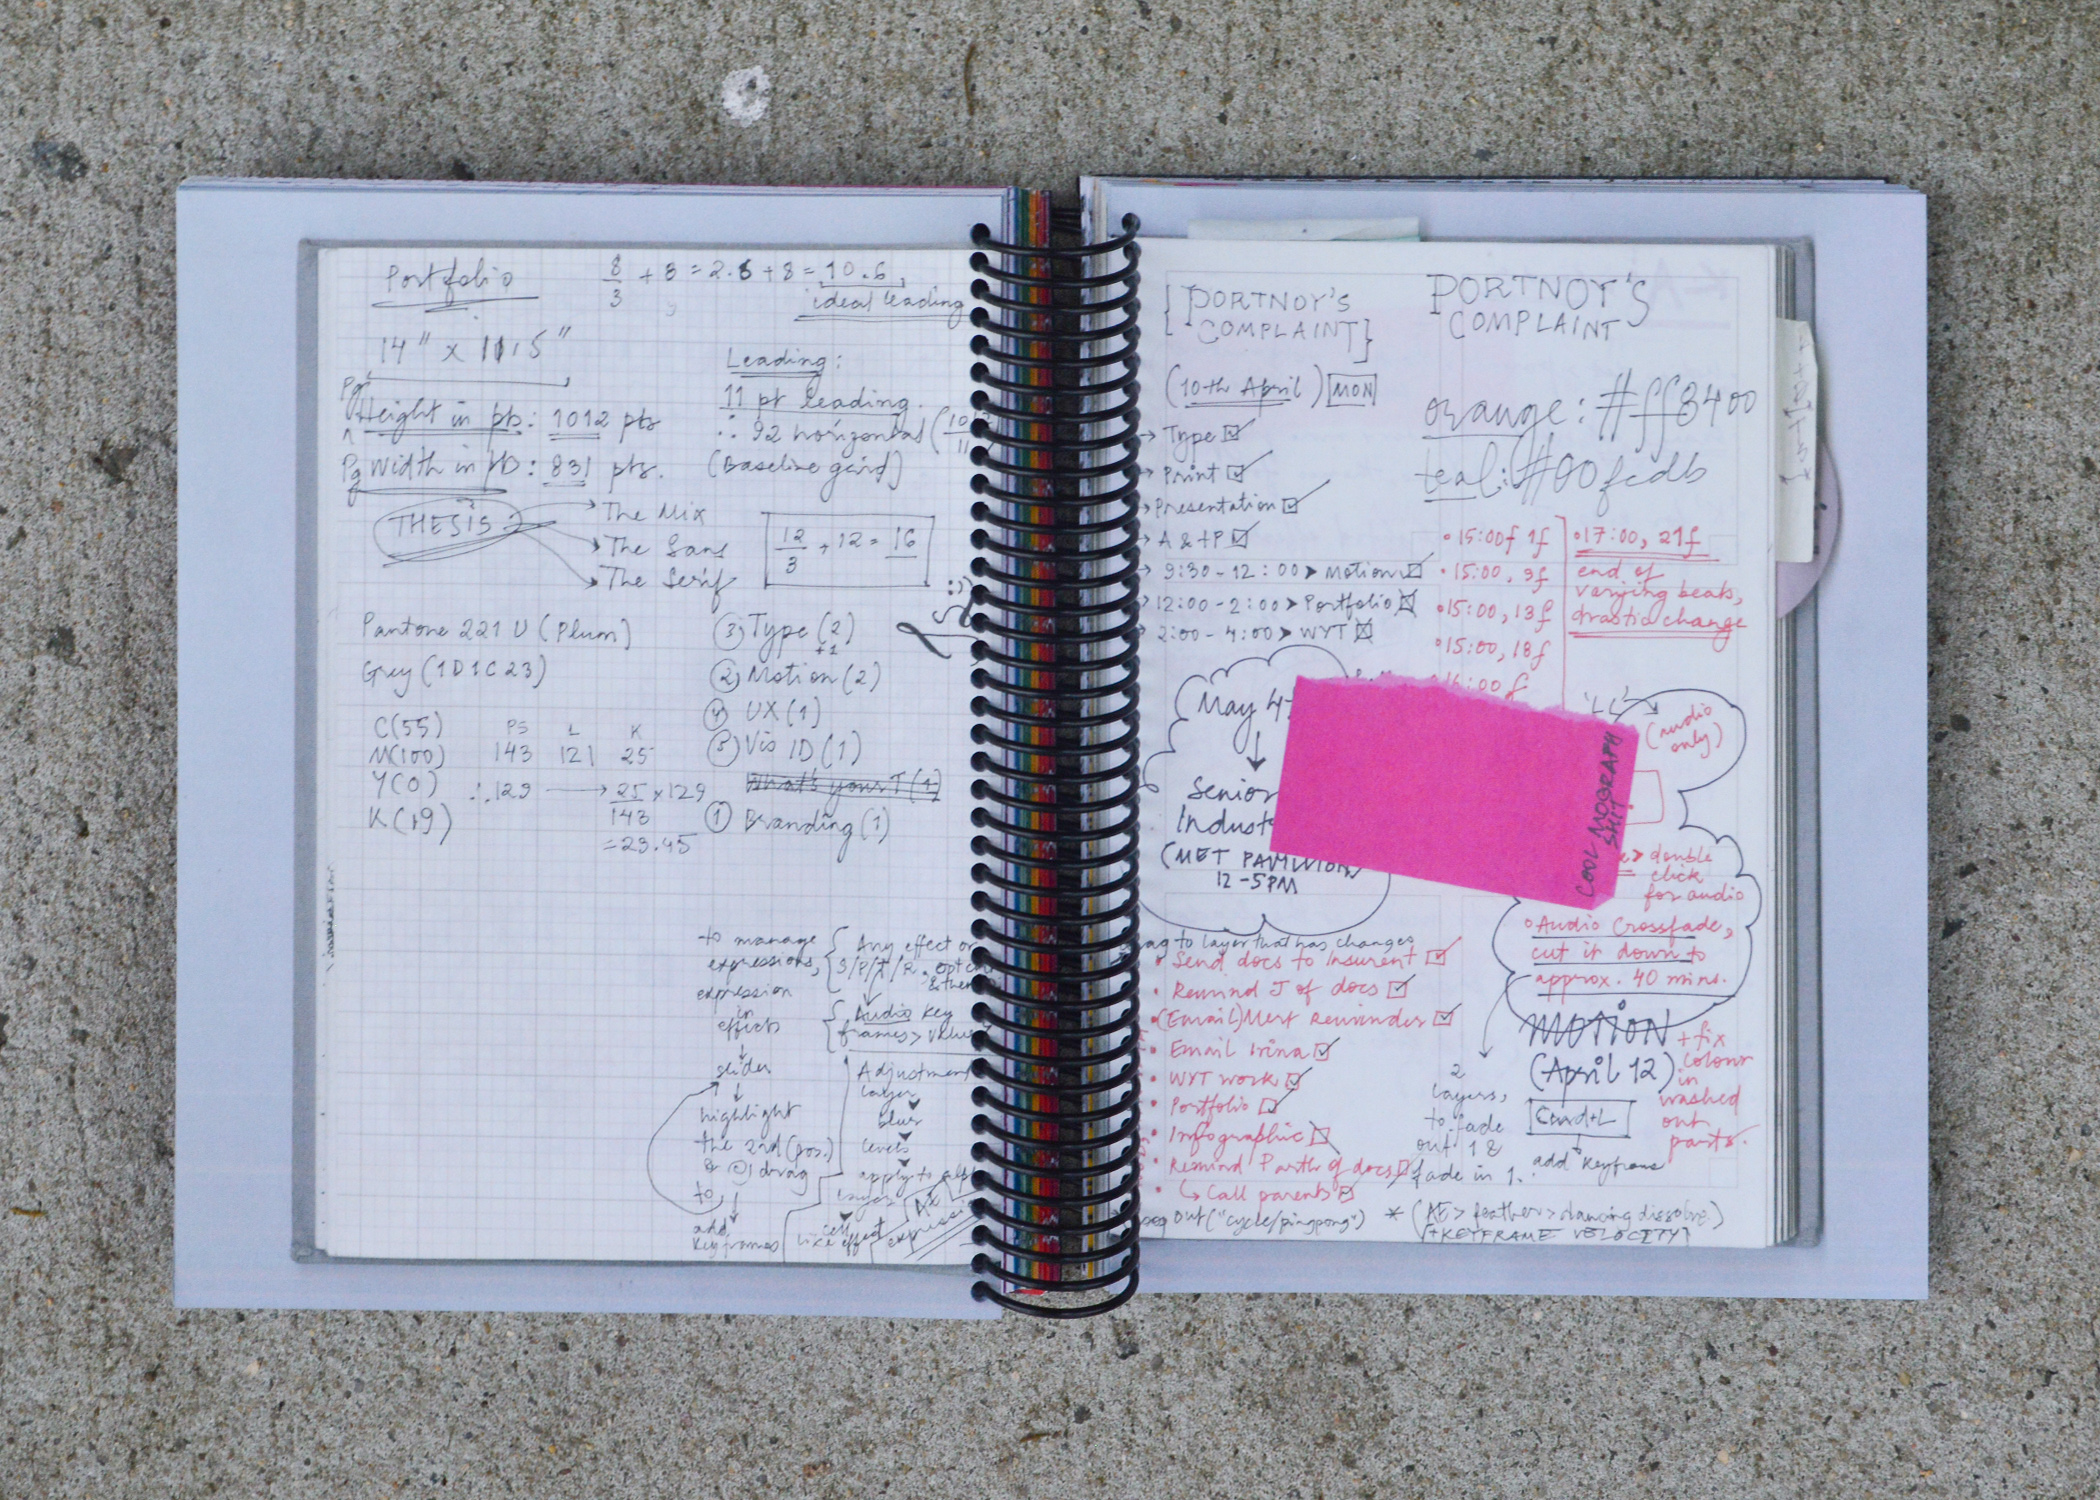 Portfolio
8/3 + 8 = 2.6 + 8 = 10.6,
ideal leading
14" x 11.5"
Height in pts: 1012 pts
Pg Width in pts: 831 pts.
Leading:
11 pt leading.
∴ 92 horizontal
(Baseline grid)
THESIS
The Mix
The Sans
The Serif
12/3 + 12 = 16
Pantone 221 U (Plum)
Grey (1D1C23)
C(55)
M(100)
Y(0)
K(19)
PS L K
143 121 25
∴ 129 → 25/143 x 129
= 23.45
③ Type (2)
+1
② Motion (2)
④ UX (1)
⑤ Vis ID (1)
What's your T (1)
① Branding (1)
to manage
expressions,
expression
in
effects
slider
highlight
the 2nd (pos.)
& @ drag
to,
add
keyframes
Any effect or
S/P/T/R
Audio key
frames > value
Adjustment
layer
blur
levels
apply to
layer
cell
like effect
{PORTNOY'S
COMPLAINT}
(10th April) MON
→ Type
→ Print
→ Presentation
→ A & P
→ 9:30 - 12:00 > Motion
→ 12:00 - 2:00 > Portfolio
→ 2:00 - 4:00 > WYT
PORTNOY'S
COMPLAINT
orange: #ff8400
teal: #00fcdb
• 15:00f 1f
• 15:00, 3f
• 15:00, 13f
• 15:00, 18f
16:00 f
• 17:00, 21f
end of
varying beats,
drastic change
May 4
Senior
Indust
(MET PAVILION)
12-5PM
COOL MOGRAPH
SHIT
'LL'
(audio
only)
> double
click
for audio
• Audio Crossfade,
cut it down to
approx. 40 mins.
to layer that has changes
• Send docs to Insurent
• Remind J of docs
• (Email) Mert Reminder
• Email Irina
• WYT work
• Portfolio
• Infographic
• Remind Parth of docs
↳ Call parents
2
layers,
to fade
out 1 &
fade in 1.
MOTION
(April 12)
Cmd+L
add keyframe
+ fix
colour
in
washed
out
parts.
Out("cycle/pingpong")
* (AE > feather > dancing dissolve)
(+KEYFRAME VELOCITY)